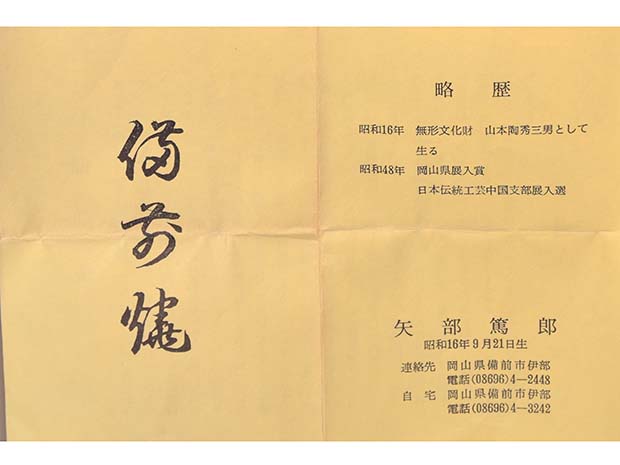 備前燒
略歴
昭和16年 無形文化財 山本陶秀三男として
生る
昭和48年 岡山県展入賞
日本伝統工芸中国支部展入選
矢部篤郎
昭和16年9月21日生
連絡先 岡山県備前市伊部
電話(08696)4―2448
自宅 岡山県備前市伊部
電話(08696)4―3242